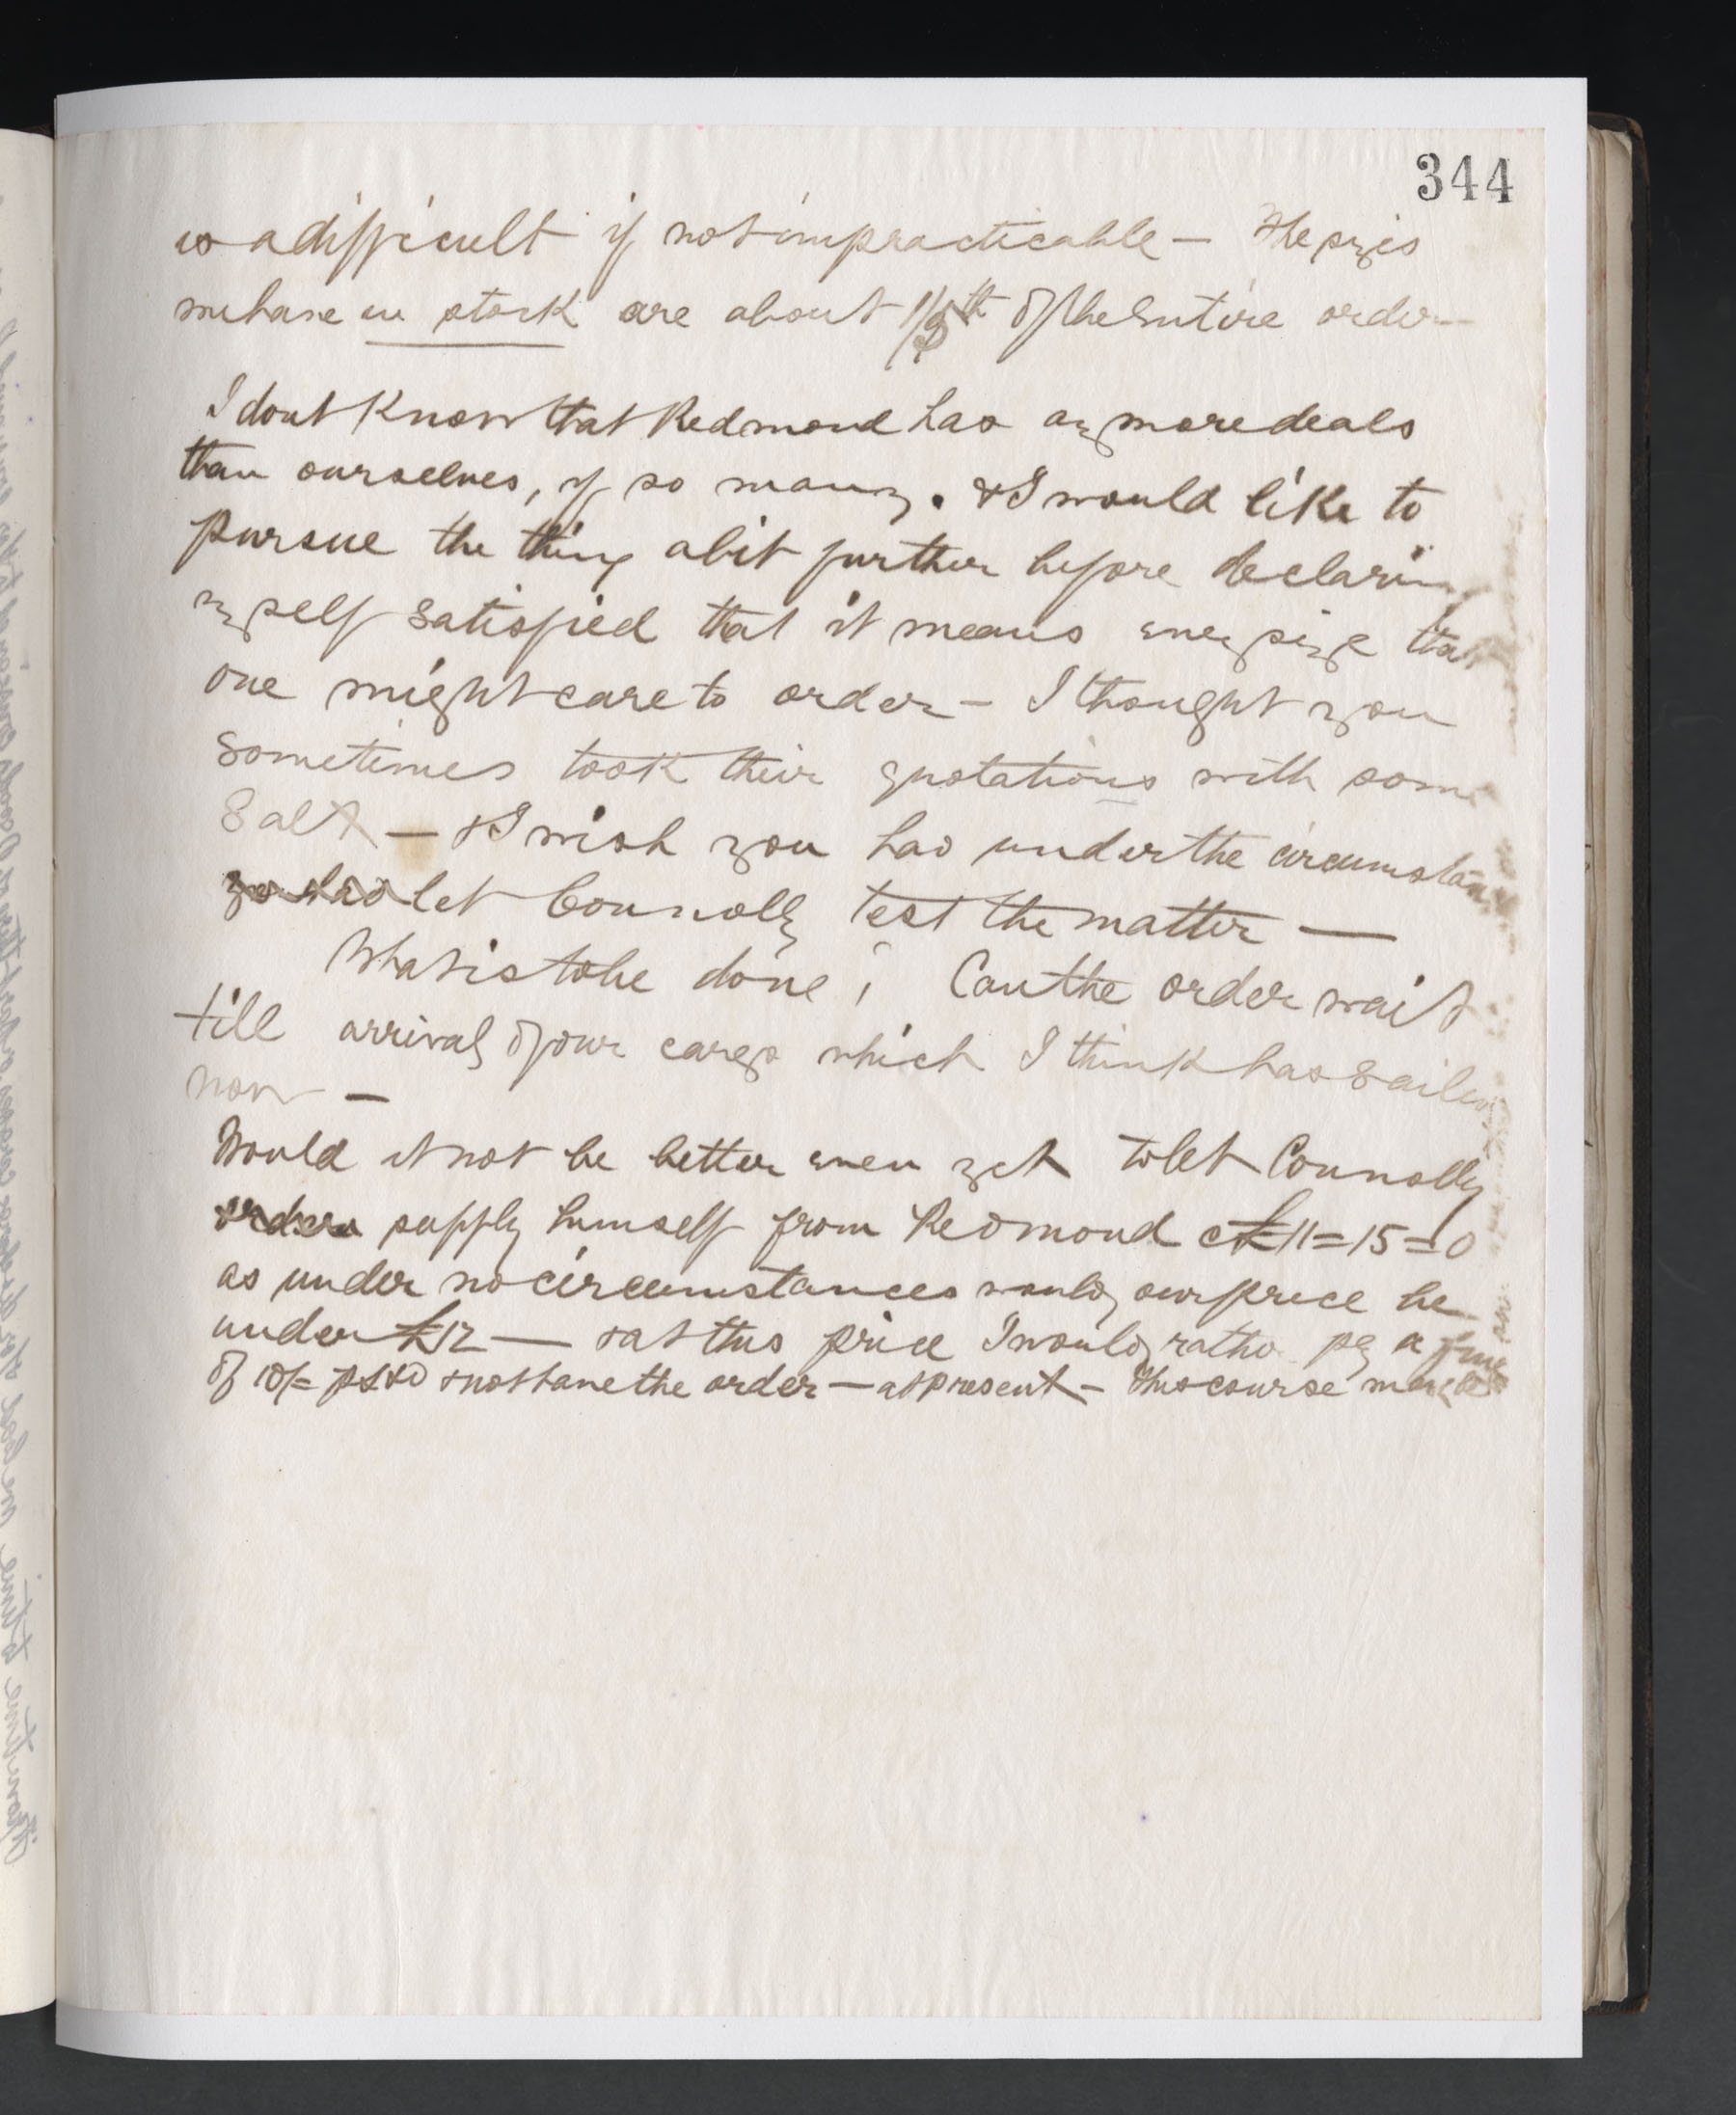 344
is a difficult if not impracticable — The sizes
we have in stock are about 1/8th of the entire order —
I dont know that Redmond has any more deals
than ourselves, if so many. & I would like to
pursue the thing a bit further before declaring
myself satisfied that it means every size that
one might care to order — I thought you
sometimes took their quotations with some
Salt — & I wish you had under the circumstances
let Connolly test the matter —
What is to be done ? Can the order wait
till arrival of our cargo which I think has sailed
now —
Would it not be better even yet to let Connolly
orders supply himself from Redmond @ £11=15=0
as under no circumstances would our price be
under £12 — & at this price I would rather pay a fine
of 10/= & not have the order — at present — This course may